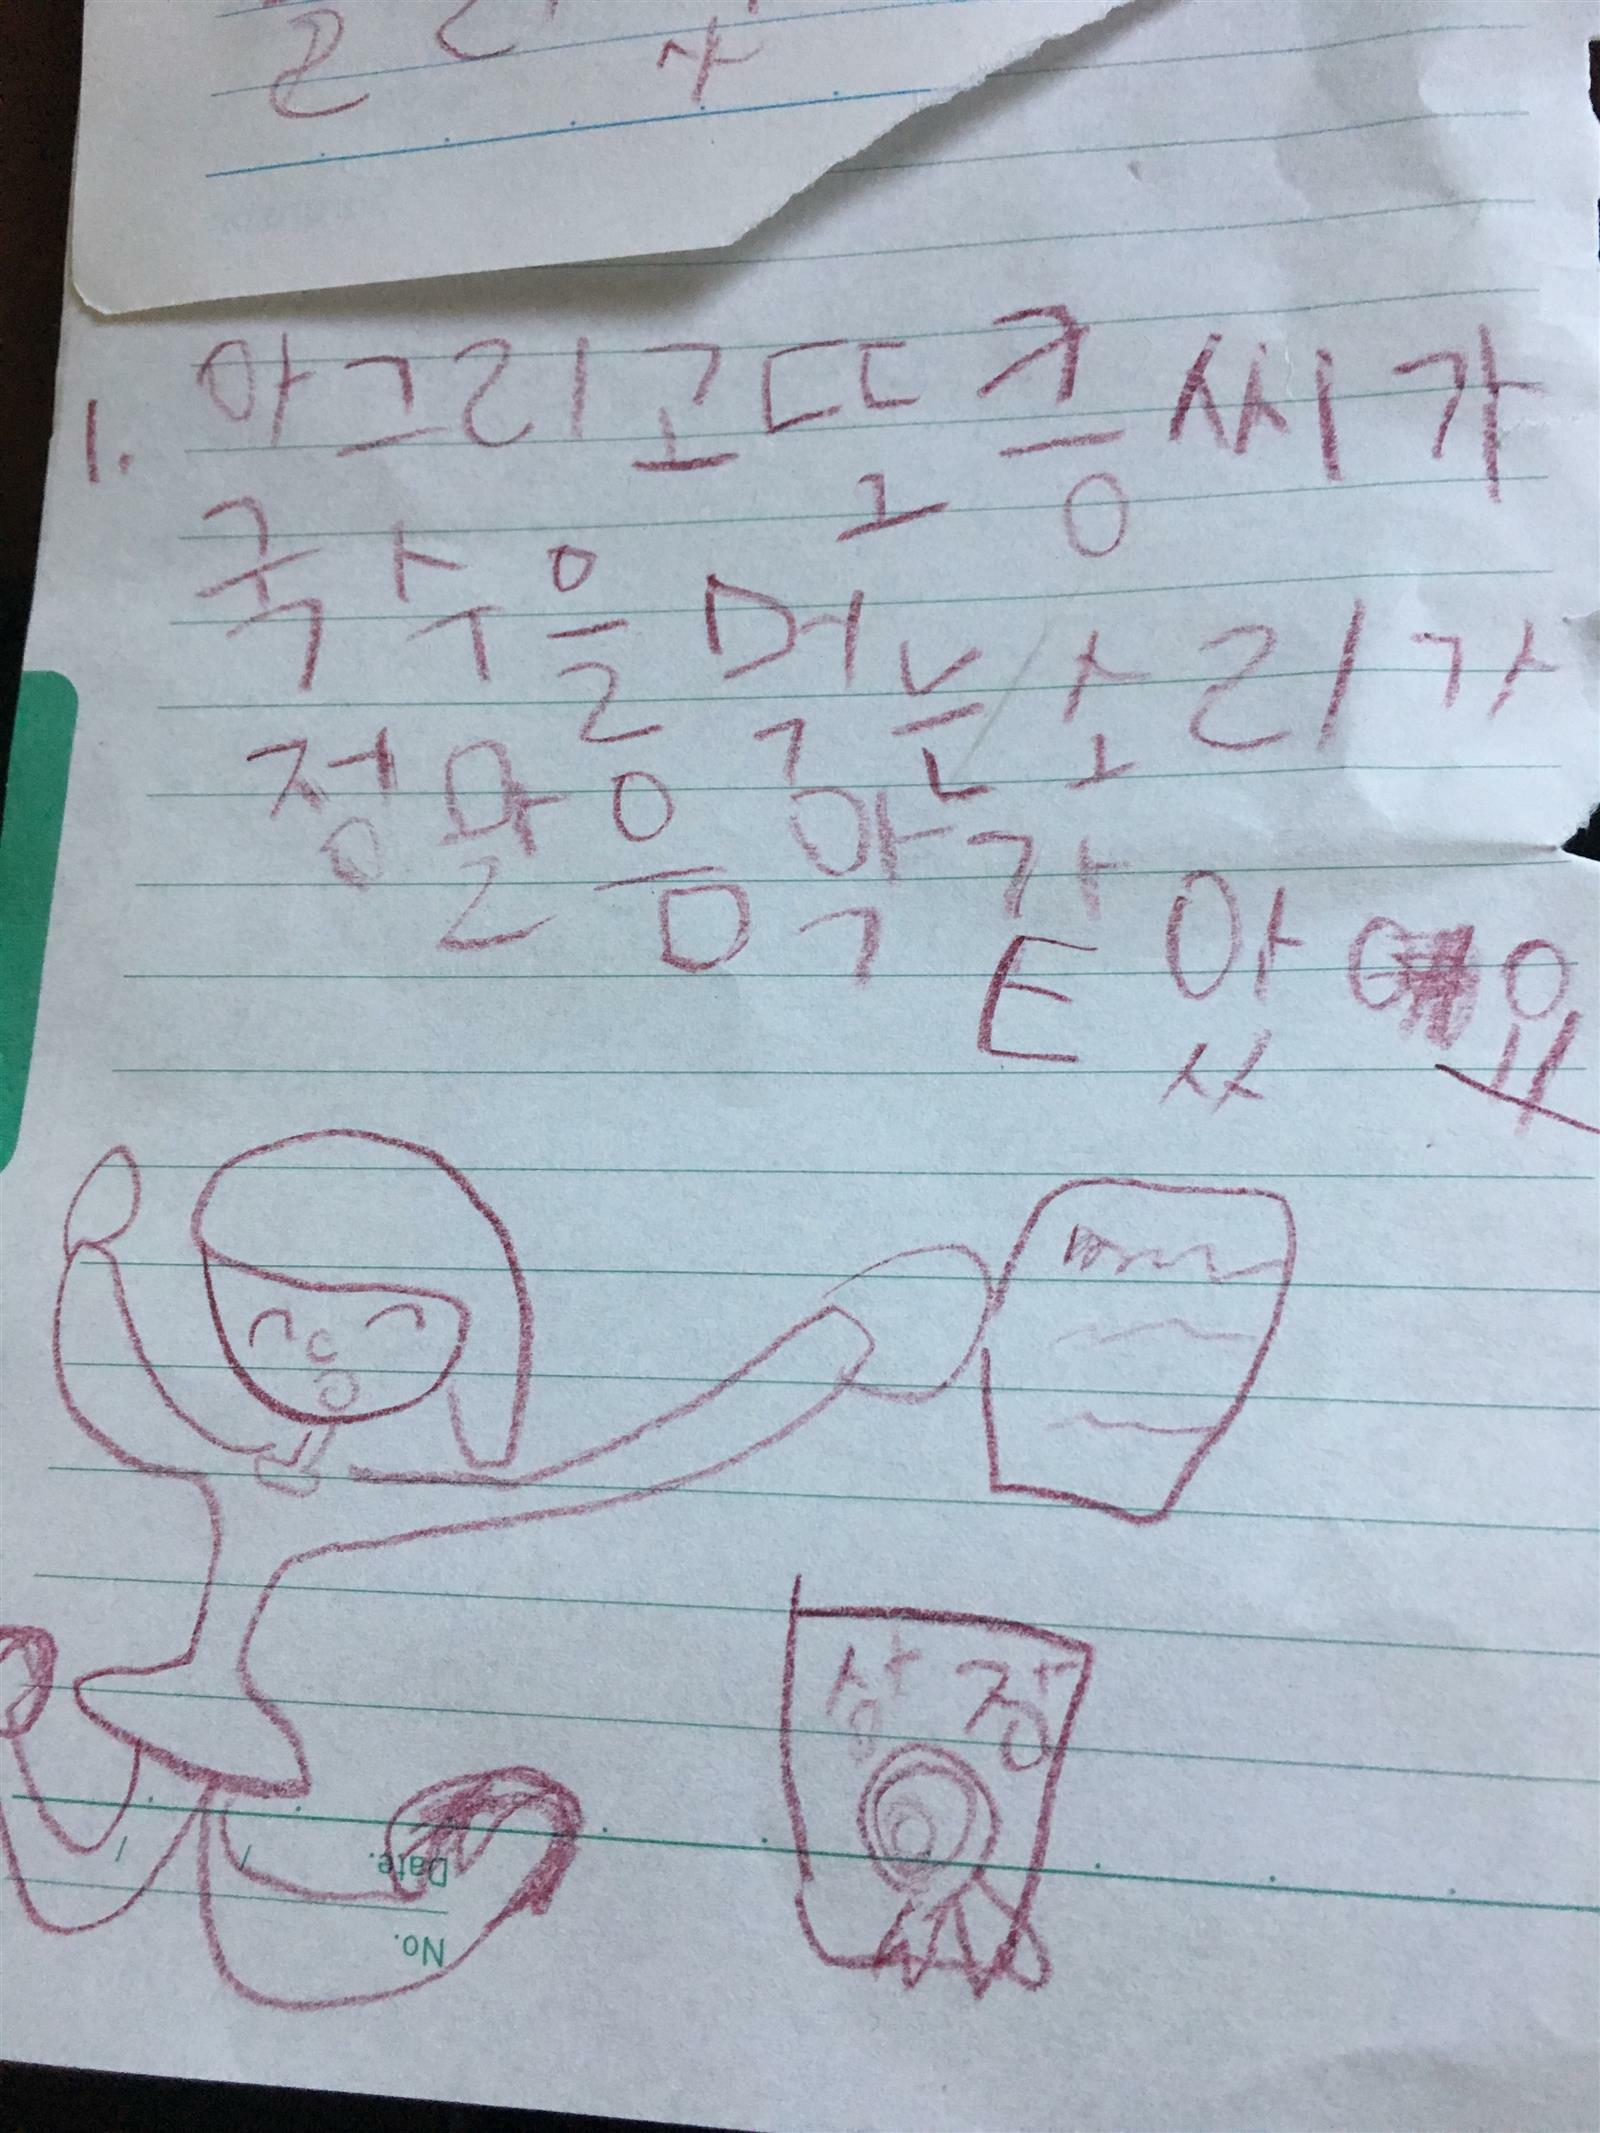 1. 아 그리고 또 중씨가
국수을 먹는 소리가
정말 음악 같았어요
상장
Date.
No.